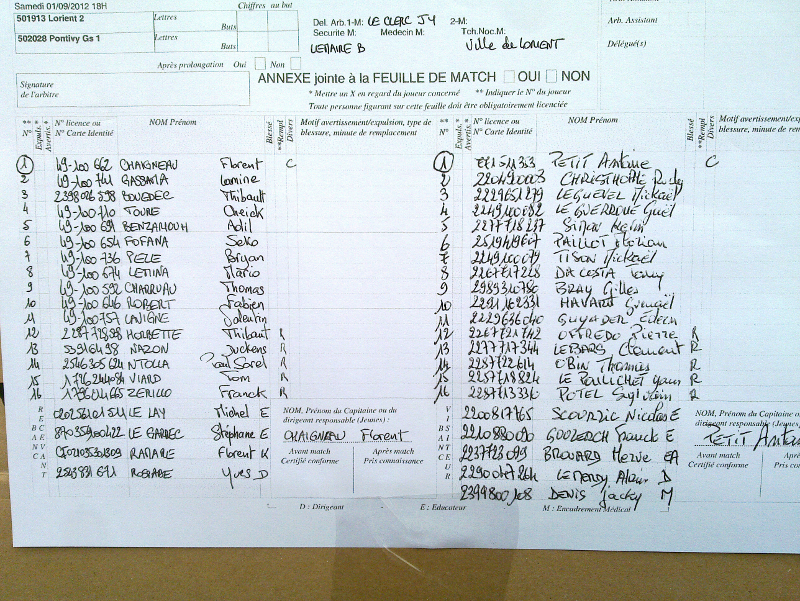 Samedi 01/09/2012 18H
Chiffres au but
501913 Lorient 2
Lettres
Buts
502028 Pontivy Gs 1
Lettres
Buts
Après prolongation Oui Non
Del. Arb.1-M: LE CLERC J4 2-M:
Securite M: Medecin M: Tch.Noc.M:
LEMAIRE B Ville de LORIENT
Arb. Assistant
Délégué(s)
Signature
de l'arbitre
ANNEXE jointe à la FEUILLE DE MATCH OUI NON
* Mettre un X en regard du joueur concerné ** Indiquer le N° du joueur
Toute personne figurant sur cette feuille doit être obligatoirement licenciée
** N° Expuls. * Avertis. * N° licence ou N° Carte Identité NOM Prénom Blessé **Rempl Divers Motif avertissement/expulsion, type de blessure, minute de remplacement
1 49-100 662 CHAIGNEAU Florent C
2 49-100 741 GASSAMA Lamine
3 2398026 598 BOUEDEC Thibault
4 49-100 710 TOURE Cheick
5 49-100 691 BENZAHOUH Adil
6 49-100 654 FOFANA Seko
7 49-100 736 PELE Bryan
8 49-100 674 LEMINA Mario
9 49-100 592 CHARRUAU Thomas
10 49-100 646 ROBERT Fabien
11 49-100757 LAVIGNE Valentin
12 228772898 HORBETTE Thibaut R
13 53916498 NAZON Duckens R
14 2546305 624 NTOLLA Paul Sorel R
15 1796244084 VIARD Tom R
16 1796014665 ZERILLO Franck R
BANC
LE LAY Michel E
LE GARREC Stéphane E
Florent K
2543831 671 Yves D
NOM, Prénom du Capitaine ou du dirigeant responsable (Jeunes) :
CHAIGNEAU Florent
Avant match Certifié conforme
Après match Pris connaissance
** N° Expuls. * Avertis. * N° licence ou N° Carte Identité NOM Prénom Blessé **Rempl Divers Motif avertissement/expu blessure, minute de rempl
1 PETIT Antoine C
2 2204920003 CHRISTHOPHE Rudy
3 2229651279 LE GUEVEL Mickaël
4 2249100092 LE GUERROUE Gaël
5 2277718237 SIMON Kevin
6 2519419607 PAILLOT
7 2249100079 TISON Mickaël
8 2267617228 DA COSTA Tony
9 2989310780 BRAY Gilles
10 2291162331 HAVART Gwenaël
11 2229636040 GUYADER
12 2267721742 OFFREDO Pierre R
13 2277717344 LE BARS Clement R
14 2287722614 OBIN Thomas R
15 2257718824 LE POULLICHET Yann R
16 2287713336 POTEL Sylvain R
2200817765 SCOURZIC Nicolas E
2210880090 Franck E
2237723099 BROUARD Herve EA
2290047264 Alain D
2399800108 DENIS Jacky M
NOM, Prénom du Capitaine ou dirigeant responsable (Jeunes) :
PETIT Antoi
Avant match Certifié conforme
Après Pris conn
D : Dirigeant - E : Educateur M : Encadrement Médical